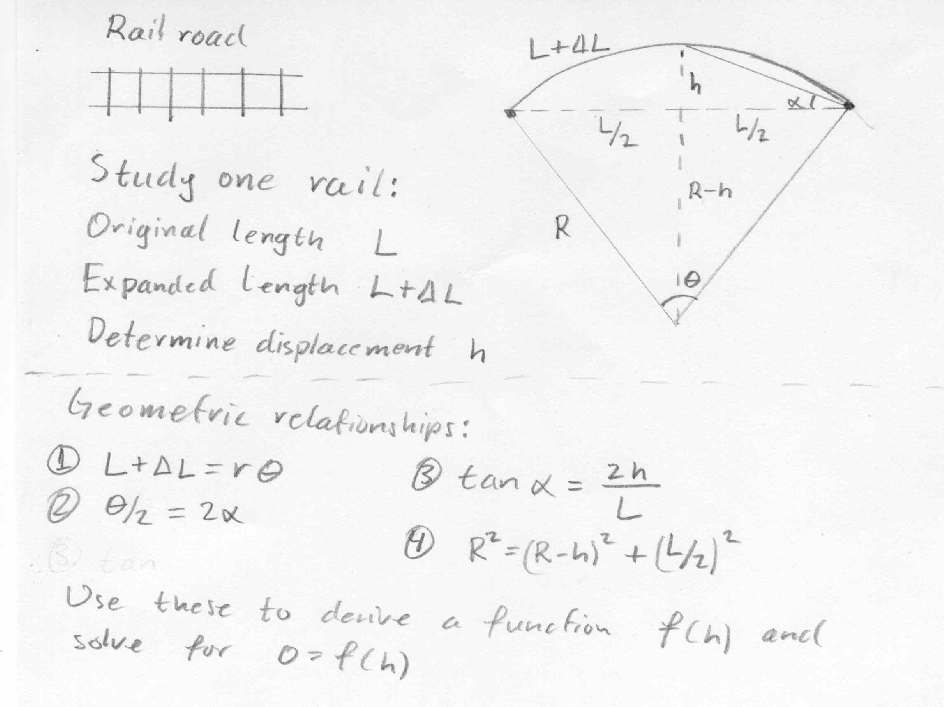 Rail road
L+ΔL
h
α
L/2
L/2
R-h
R
θ
Study one rail:
Original length L
Expanded length L+ΔL
Determine displacement h
Geometric relationships:
① L+ΔL = rθ
② θ/2 = 2α
③ tan α = 2h/L
④ R² = (R-h)² + (L/2)²
③ tan
Use these to derive a function f(h) and
solve for 0 = f(h)